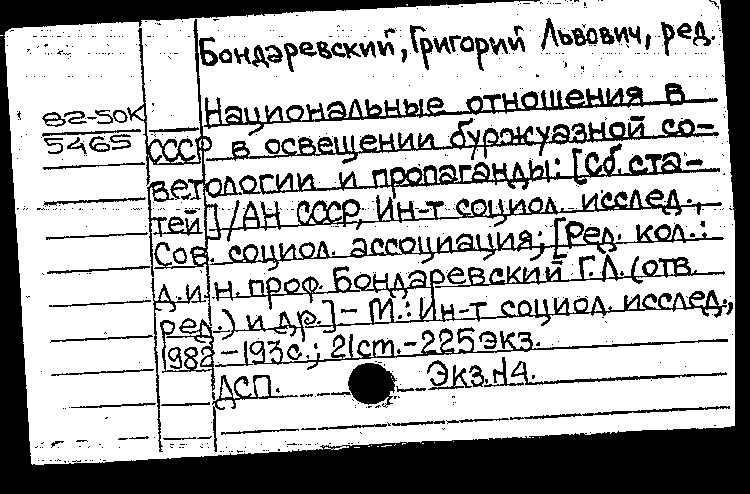 Бондаревский, Григорий Львович, ред.
82-50К
5465
Национальные отношения в
СССР в освещении буржуазной со-
ветологии и пропаганды: [Сб. ста-
тей] / АН СССР, Ин-т социол. исслед.,
Сов. социол. ассоциация; [Ред. кол.:
д.и.н. проф. Бондаревский Г.Л. (отв.
ред.) и др.] - М.: Ин-т социол. исслед.,
1982 - 193 с.; 21 ст. - 225 экз.
ДСП. Экз. № 4.